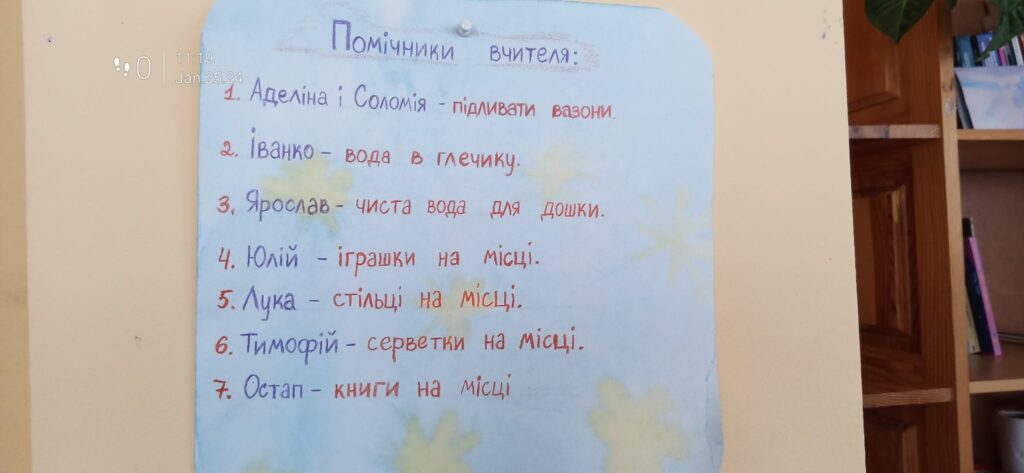 0
11:19
Jan.25.24
Помічники вчителя:
1. Аделіна і Соломія - підливати вазони.
2. Іванко - вода в глечику.
3. Ярослав - чиста вода для дошки.
4. Юлій - іграшки на місці.
5. Лука - стільці на місці.
6. Тимофій - серветки на місці.
7. Остап - книги на місці